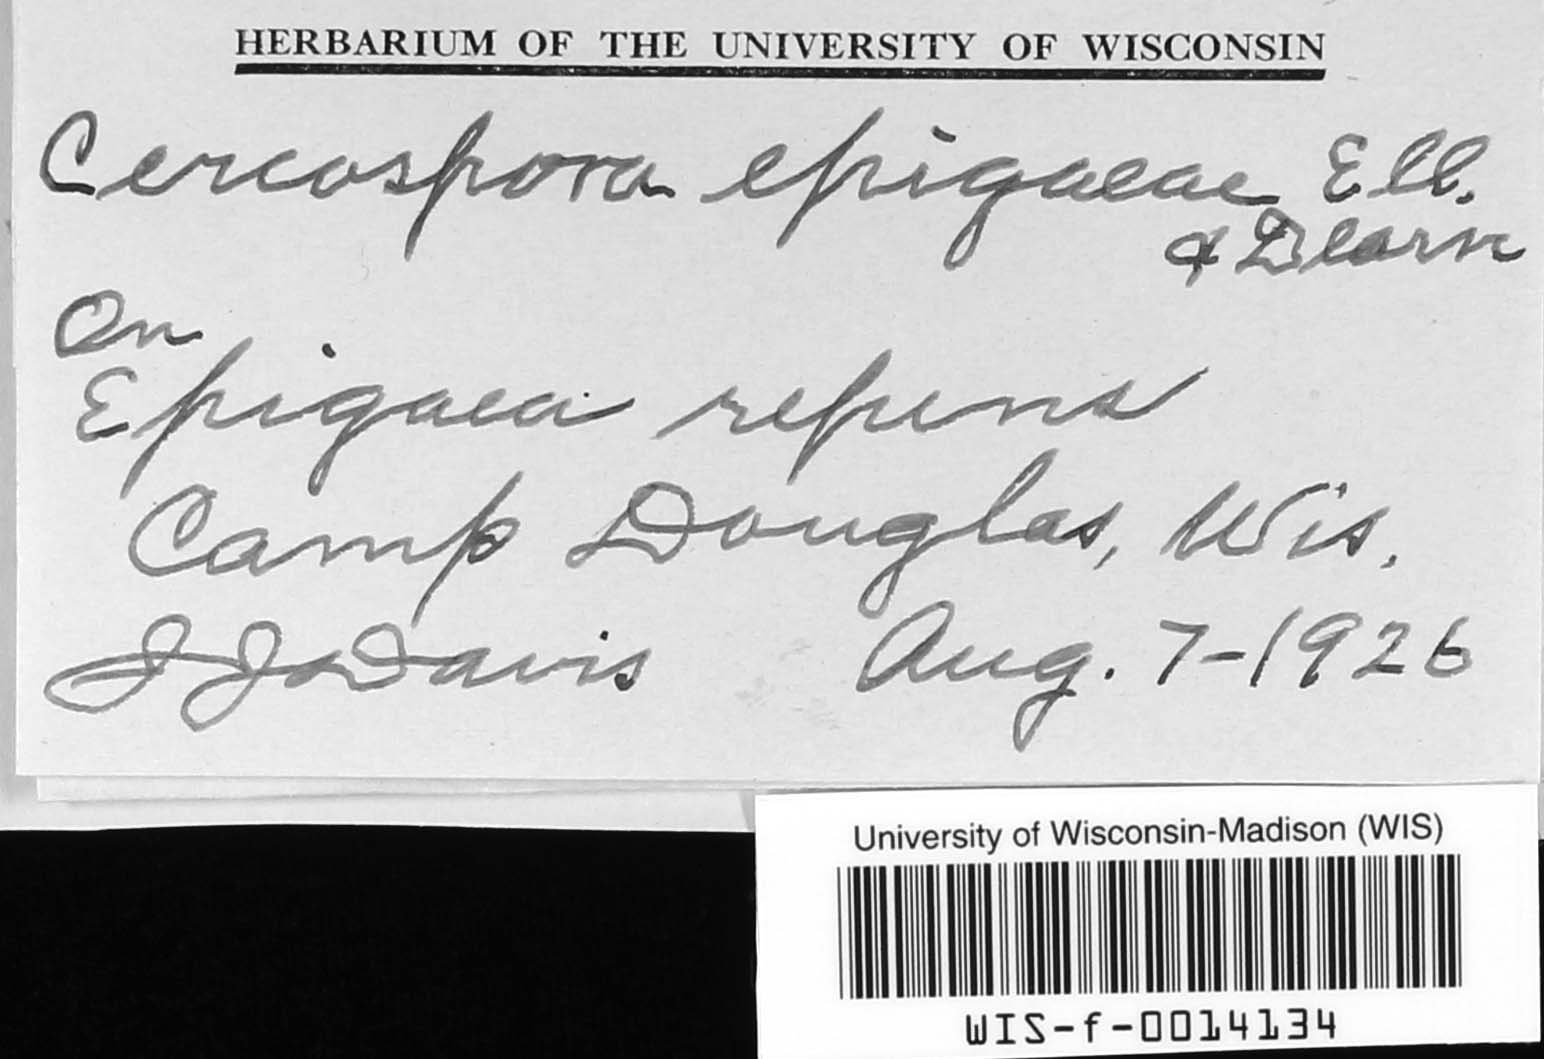 HERBARIUM OF THE UNIVERSITY OF WISCONSIN
Cercospora epigaeae Ell.
& Dearn
On
Epigaea repens
Camp Douglas, Wis.
J J Davis Aug. 7-1926
University of Wisconsin-Madison (WIS)
WIS-f-0014134